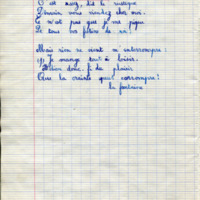 C'est assez, dit le rustique
Demain vous viendrez chez moi.
Ce n'est pas que je me pique
De tous vos festins de roi.
Mais rien ne vient m'interrompre:
Je mange tout à loisir.
Adieu donc. Fi du plaisir
Que la crainte peut corrompre!
la fontaine